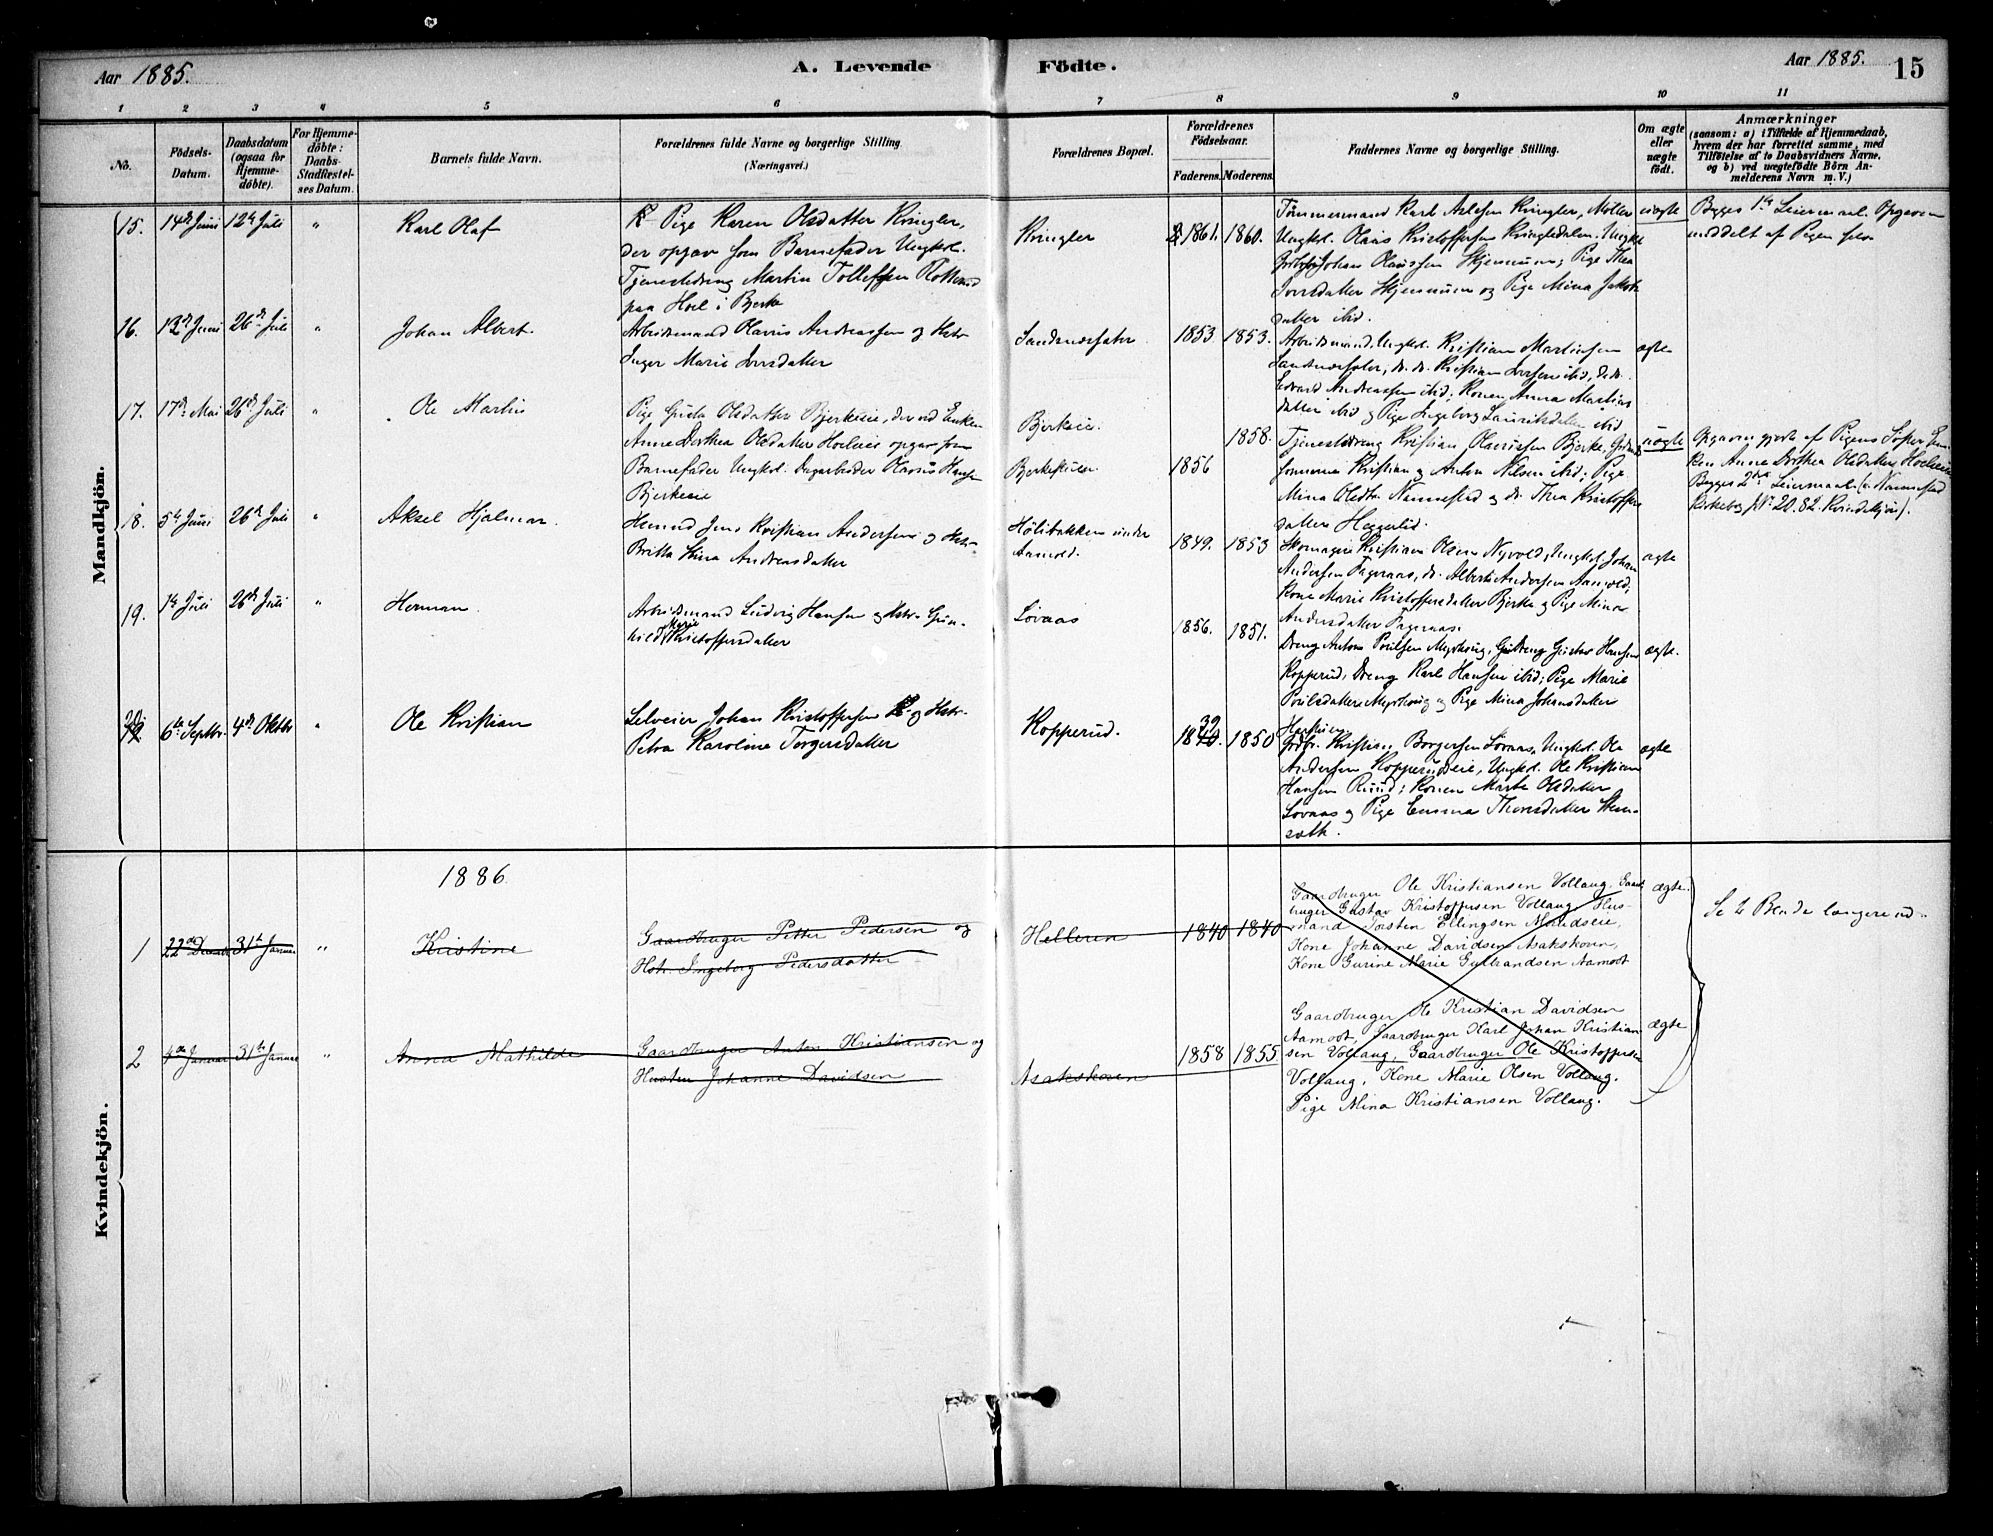 Aar 1885.
A. Levende Födte.
Aar 1885.
15
1 2 3 4 5 6 7 8 9 10 11
No.
Födsels-
Datum.
Daabsdatum
(ogsaa for
Hjemme-
döbte).
For Hjemme-
döbte:
Daabs-
Stadfæstel-
ses Datum.
Barnets fulde Navn.
Forældrenes fulde Navne og borgerlige Stilling
(Næringsvei.)
Forældrenes Bopæl.
Forældrenes
Födselsaar.
Faderens. Moderens.
Faddernes Navne og borgerlige Stilling.
Om ægte
eller
uægte
födt.
Anmærkninger
(saasom: a) i Tilfælde af Hjemmedaab,
hvem der har forrettet samme, med
Tilföielse af to Daabsvidners Navne,
og b) ved uægtefödte Börn An-
melderens Navn m. V.)
Mandkjön.
15. 14de Juni 12te Juli " Karl Olaf
Pige Karen Olsdatter Kringler,
der opgav som Barnefader Ungkl.
Tjenestedreng Martin Tollefsen
paa Hoel i Bjerke
Kringler
1861. 1860.
Tømmermand Karl Kringler, Møller
Ungkl. Olaus Kristoffersen Kringlerdalen, Ungkl
Johan Olaussen Skjennum; Pige Thea
Iversdatter Skjennum og Pige Mina Jakobs
datter ibid.
uægte
Begges 1te Leiermaal. Opgaven
meddelt af Pigen selv
16. 12te Juni 26de Juli " Johan Albert.
Arbeidsmand Olavus Andreassen og Hstr.
Inger Marie Iversdatter
Sandnessaler
1853 1853.
Arbeidsmand, Ungkl. Kristian Martinsen
ibid, do.
Edvard Andreassen ibid; Konen Anna Martins
datter ibid og Pige Ingeborg ibid
ægte
17. 17de Mai 26de Juli " Ole Martin
Pige Olsdatter Bjerkeeie, der ved Enken
Anne Dorthea Olsdatter Hoeleie opgav som
Barnefader Ungkl. Dagarbeider Olavus Hansen
Bjerkeeie
Bjerkeeie.
Bjerkestuen
1856 1858.
Tjenestedreng Kristian Olaussen Bjerke,
Kristian og Anton Nilsen ibid; Pige
Mina Olsdtr. Nannestad og do. Thea Kristoffers
datter Heggerlid.
uægte
Opgaven gjort af Pigens Søster En-
ken Anne Dorthea Olsdatter Hoeleie.
Begges 2det Leiermaal (i Nannestad
Kirkebog No. 20. 82. Kvindekjön).
18. 5te Juni 26de Juli " Aksel Hjalmar.
Jens Kristian Andersen og Hstr.
Britta Stina Andreasdatter
Hölibakken under
Aamold.
1849. 1853
Skomager Kristian Olsen Nyvold, Ungkl. Johan
Andersen Fageraas, do. Albert Andersen Aamold,
Kone Marie Kristoffersdatter Bjerke og Pige Mina
Andersdatter Fageraas.
ægte
19. 1te Juli 26de Juli " Herman.
Arbeidsmand Ludvig Hansen og Hstr. Gun-
hild Marie Kristoffersdatter
Lövaas
1856. 1851.
Dreng Anton Poulsen, Dreng Gustav Hansen
Kopperud, Dreng Karl Hansen ibid; Pige Marie
Poulsdatter og Pige Mina Johansdatter
ægte.
20 6te Septbr. 4de Oktbr " Ole Kristian
Selveier Johan Kristoffersen og Hstr.
Petra Karoline Torgersdatter
Kopperud.
1839 1850
Grdbr. Kristian Borgersen Lövaas, Ungkl. Ole
Andersen Kopperudeie, Ungkl. Ole Kristian
Hansen Ruud; Konen Marte Olsdatter
Lövaas og Pige Emma Thorsdatter
ægte
Kvindekjön.
1886
1 22de Decbr 31te Januar " Kristine
Gaardbruger Petter Pedersen og
Hstr. Ingeborg Pedersdatter
Helleren
1840 1840
Gaardbruger Ole Kristiansen Vollaug, Gaard-
bruger Gustav Kristoffersen Vollaug, Hus-
mand Torsten Ellingsen,
Kone Johanne Davidsen Asakskoven,
Kone Gurine Marie Gulbrandsen Aamodt
ægte.
Se 2 Blade længere ud.
2 4de Januar 31te Januar " Anna Mathilde
Gaardbruger Anton Kristiansen og
Hustru Johanne Davidsen
Asakskoven
1858 1855
Gaardbruger Ole Kristian Davidsen
Aamodt, Gaardbruger Karl Johan Kristian-
sen Vollaug, Gaardbruger Ole Kristoffersen
Vollaug, Kone Marie Olsen Vollaug.
Pige Mina Kristiansen Vollaug.
ægte